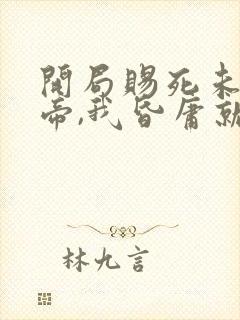 開局賜死未
帝,我昏庸就
林九言